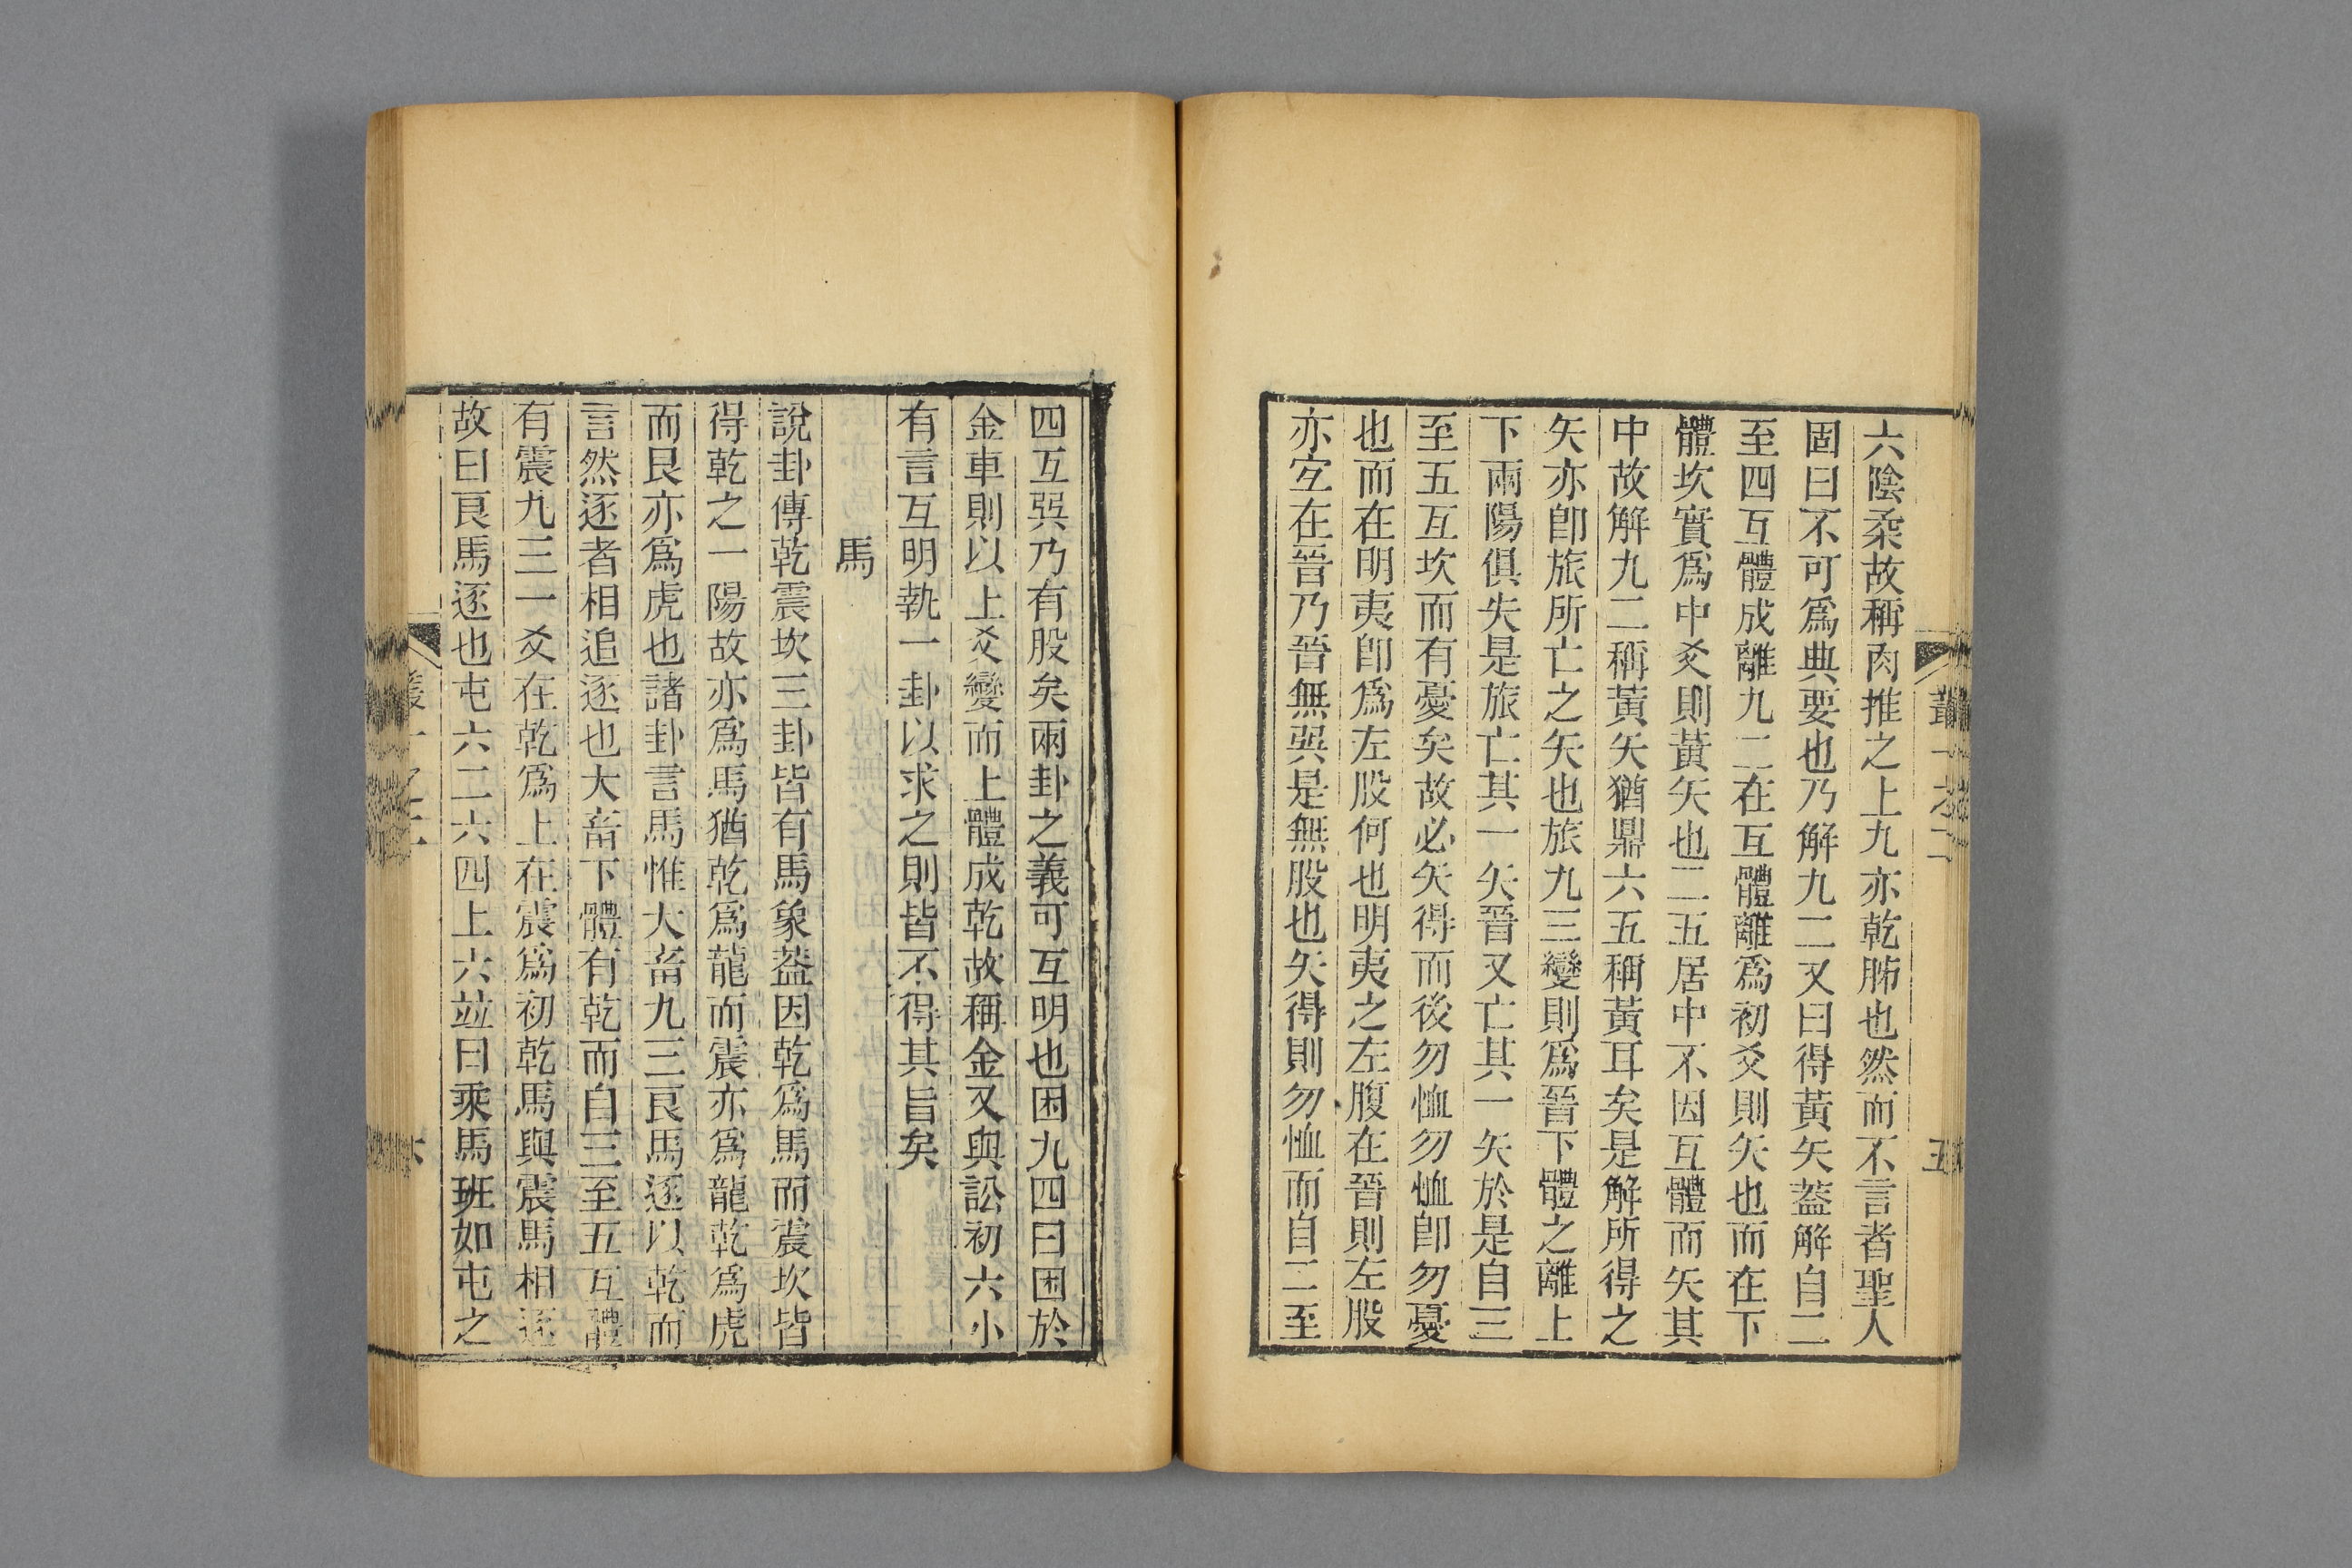 六陰柔故稱肉推之上九亦乾肺也然而不言者聖人
固曰不可爲典要也乃解九二又曰得黃矢葢解自二
至四互體成離九二在互體離爲初爻則矢也而在下
體坎實爲中爻則黃矢也二五居中不因互體而矢其
中故解九二稱黃矢猶鼎六五稱黃耳矣是解所得之
矢亦卽旅所亡之矢也旅九三變則爲晉下體之離上
下兩陽俱失是旅亡其一矢晉又亡其一矢於是自三
至五互坎而有憂矣故必矢得而後勿恤勿恤卽勿憂
也而在明夷卽爲左股何也明夷之左腹在晉則左股
亦宐在晉乃晉無巽是無股也矢得則勿恤而自二至
五
四互巽乃有股矣兩卦之義可互明也困九四曰困於
金車則以上爻變而上體成乾故稱金又與訟初六小
有言互明執一卦以求之則皆不得其旨矣
馬
說卦傳乾震坎三卦皆有馬象葢因乾爲馬而震坎皆
得乾之一陽故亦爲馬猶乾爲龍而震亦爲龍乾爲虎
而艮亦爲虎也諸卦言馬惟大畜九三良馬逐以乾而
言然逐者相追逐也大畜下體有乾而自三至五互體
有震九三一爻在乾爲上在震爲初乾馬與震馬相逐
故曰良馬逐也屯六二六四上六竝曰乘馬班如屯之